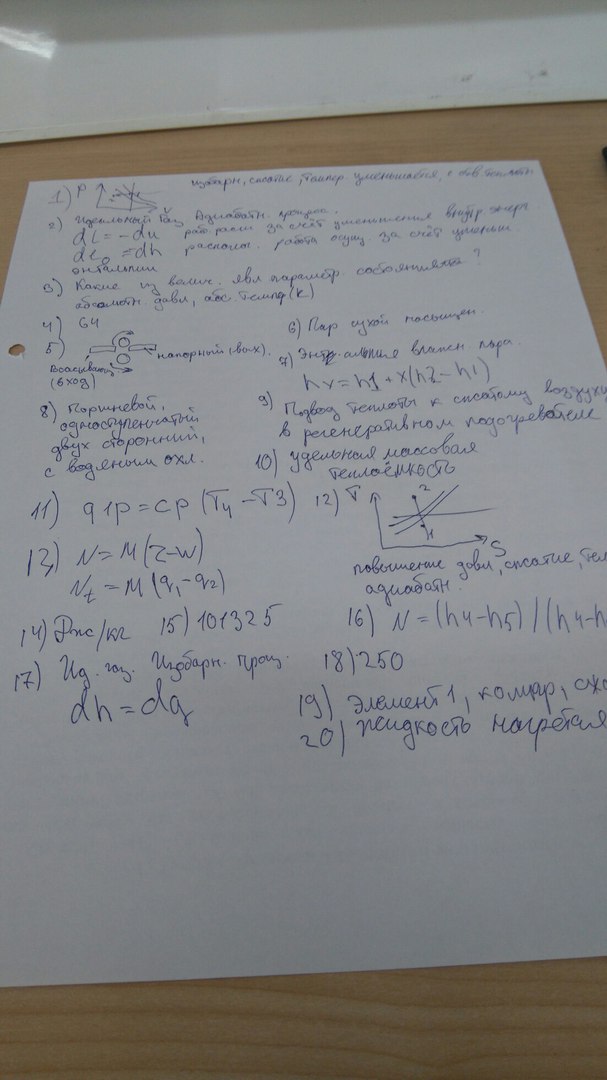 изобарн, сжатие, темпер. уменьшается, с отв. теплоты
1) P
2) Идеальный газ. Адиабатн. процесс.
dl = -du раб. расш. за счёт уменьшения внутр. энерг
dl₀ = dh располог. работа осущ. за счёт уменьш
энтальпии
3) Какие из велич. явл параметр состояния ?
абсолютн. давл, абс. темпер(к)
4) 64
5) напорный (вых).
Всасывающ
(вход)
6) Пар сухой насыщен.
7) влажн. пара.
hx = h1 + x(h2 - h1)
8) Поршневой,
одноступенчатый
двух сторонний,
с водяным охл.
9) Подвод теплоты к сжатому воздуху
в регенеративном подогревателе
10) удельная массовая
теплоёмкость
11) q1p = cp (T4 - T3)
12) T
2
1
S
повышение давл, сжатие, тем
адиабатн.
13) N = M(z-w)
Nt = M(q₁ - q₂)
14) Дж/кг
15) 101325
16) N = (h4 - h5) / (h4 - h
17) Ид. газ. Изобарн. проц.
dh = dq
18) 250
19) Элемент 1, компр,
20) жидкость нагретая